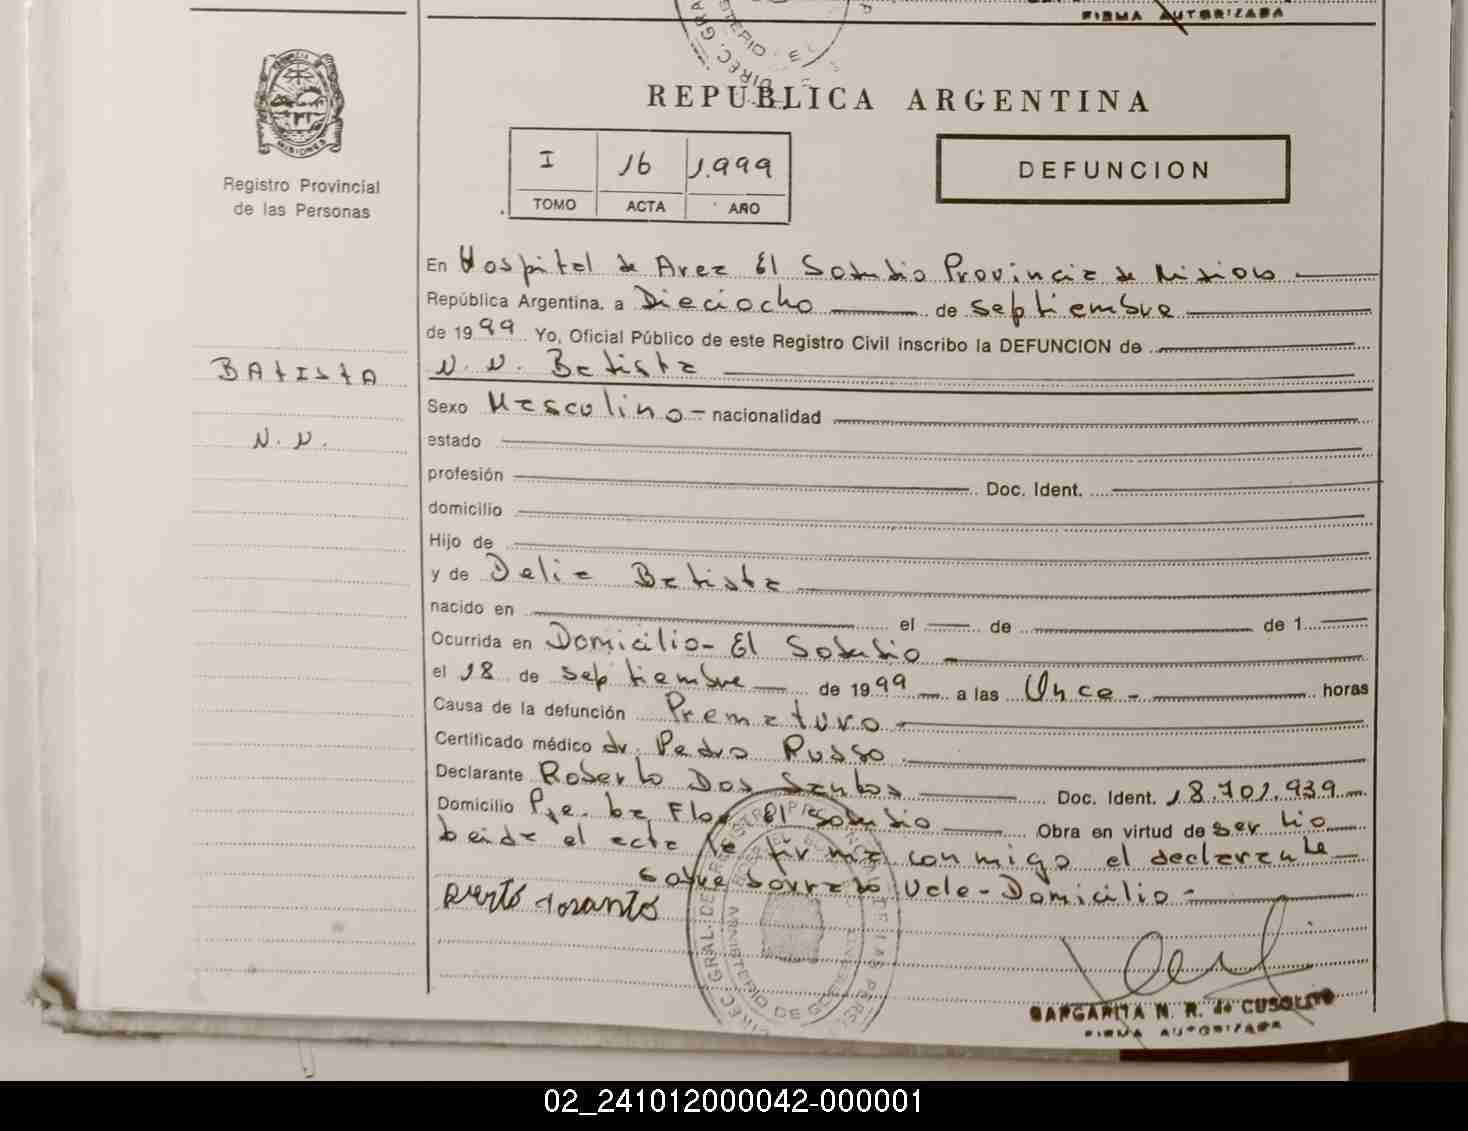 FIRMA AUTORIZADA
MISIONES
Registro Provincial
de las Personas
REPUBLICA ARGENTINA
I 16 1.999
TOMO ACTA AÑO
DEFUNCION
En Hospital de Area El Soberbio Provincia de Misiones
República Argentina, a Dieciocho de Septiembre
de 1999 Yo, Oficial Público de este Registro Civil inscribo la DEFUNCION de
BATISTA
N. N. Batista
Sexo Masculino - nacionalidad
N. N.
estado
profesión Doc. Ident.
domicilio
Hijo de
y de Delia Batista
nacido en el de de 1
Ocurrida en Domicilio - El Soberbio
el 18 de Septiembre de 1999 a las Once - horas
Causa de la defunción Prematuro
Certificado médico dr. Pedro Russo
Declarante Roberto Dos Santos Doc. Ident. 18.701.939
Domicilio Pje. la Flor El Soberbio Obra en virtud de ser tio
leida el acta la firma conmigo el declarante
Sobre borrado Vale - Domicilio -
MARGARITA N. R. de CUSOLITO
FIRMA AUTORIZADA
02_241012000042-000001